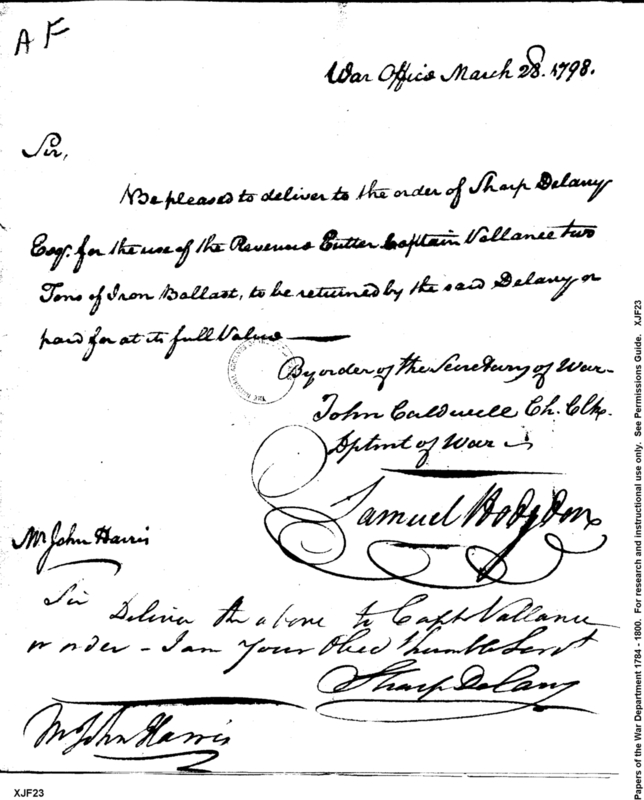 AF
War Office March 28. 1798.
Sir,
Be pleased to deliver to the order of Sharp Delany
Esqr. for the use of the Revenue Cutter Captain Vallance two
Tons of Iron Ballast, to be returned by the said Delany or
paid for at its full Value
By order of the Secretary of War
John Caldwell Ch. Clk.
Dptmt of War
Samuel Hodgdon
Mr John Harris
Sir Deliver the above to Capt Vallance
or order - I am Your Obed humble Servt
Sharp Delany
Mr John Harris
XJF23
Papers of the War Department 1784 - 1800. For research and instructional use only. See Permissions Guide. XJF23